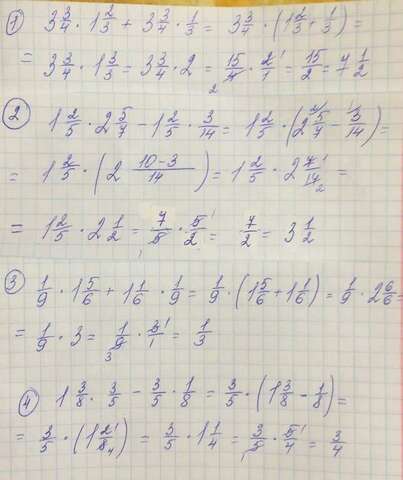 1) 3 3/4 · 1 2/3 + 3 3/4 · 1/3 = 3 3/4 · (1 2/3 + 1/3) =
= 3 3/4 · 1 3/3 = 3 3/4 · 2 = 15/4 · 2/1 = 15/2 = 7 1/2
2) 1 2/5 · 2 5/7 − 1 2/5 · 3/14 = 1 2/5 · (2 5/7 − 3/14) =
= 1 2/5 · (2 (10−3)/14) = 1 2/5 · 2 7/14 =
= 1 2/5 · 2 1/2 = 7/5 · 5/2 = 7/2 = 3 1/2
3) 1/9 · 1 5/6 + 1 1/6 · 1/9 = 1/9 · (1 5/6 + 1 1/6) = 1/9 · 2 6/6 =
= 1/9 · 3 = 1/9 · 3/1 = 1/3
4) 1 3/8 · 3/5 − 3/5 · 1/8 = 3/5 · (1 3/8 − 1/8) =
= 3/5 · (1 2/8) = 3/5 · 1 1/4 = 3/5 · 5/4 = 3/4